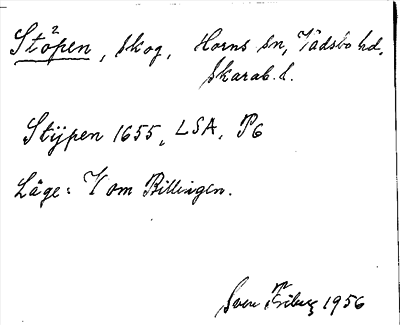 Stö²pen, skog, Horns sn, Vadsbo hd,
Skarab. l.
Stijpen 1655, LSA, P6
Läge: V om Billingen.
Sven Friberg 1956